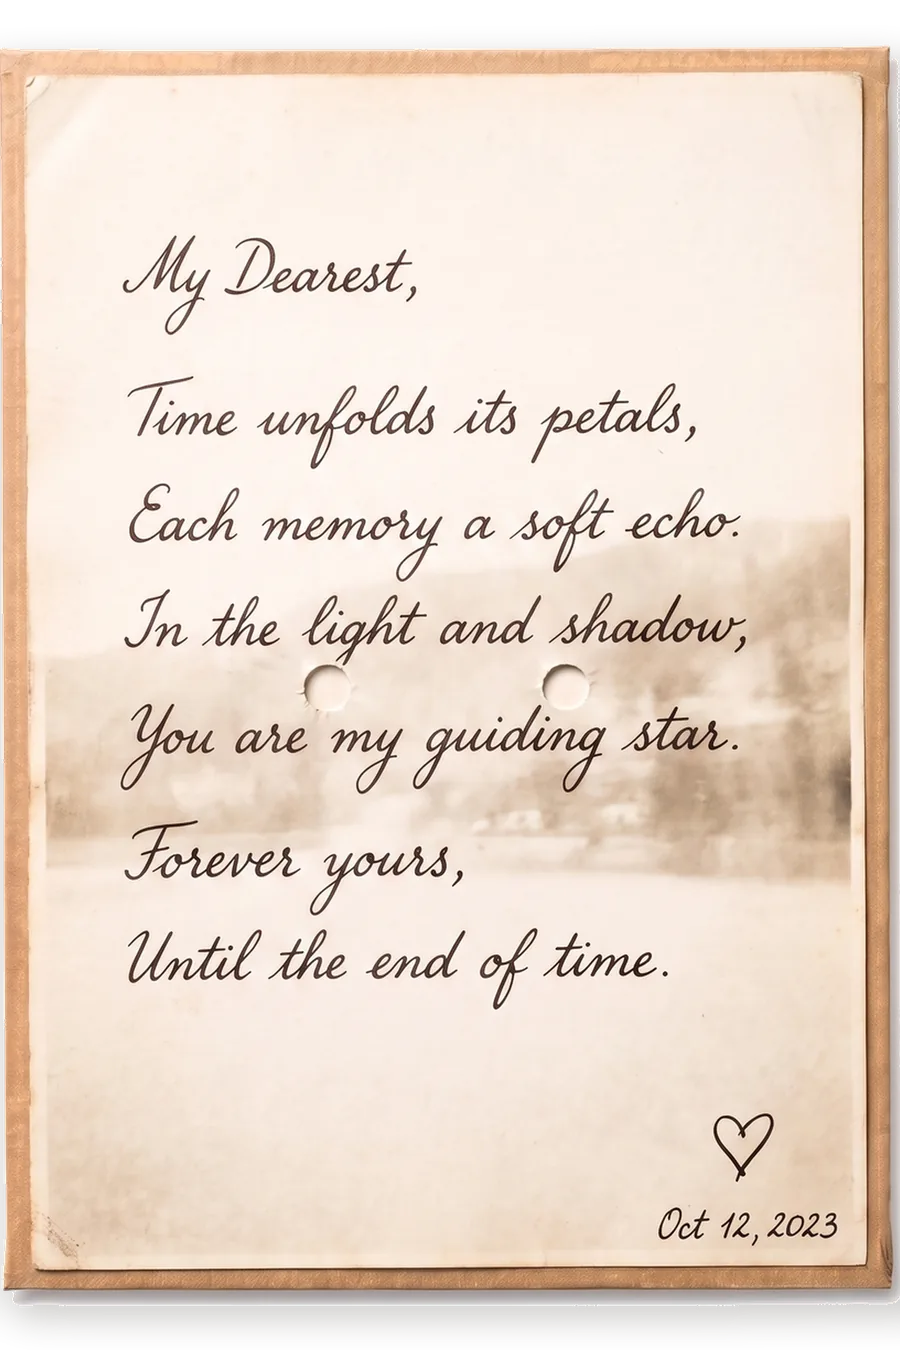 My Dearest,
Time unfolds its petals,
Each memory a soft echo.
In the light and shadow,
You are my guiding star.
Forever yours,
Until the end of time.
Oct 12, 2023